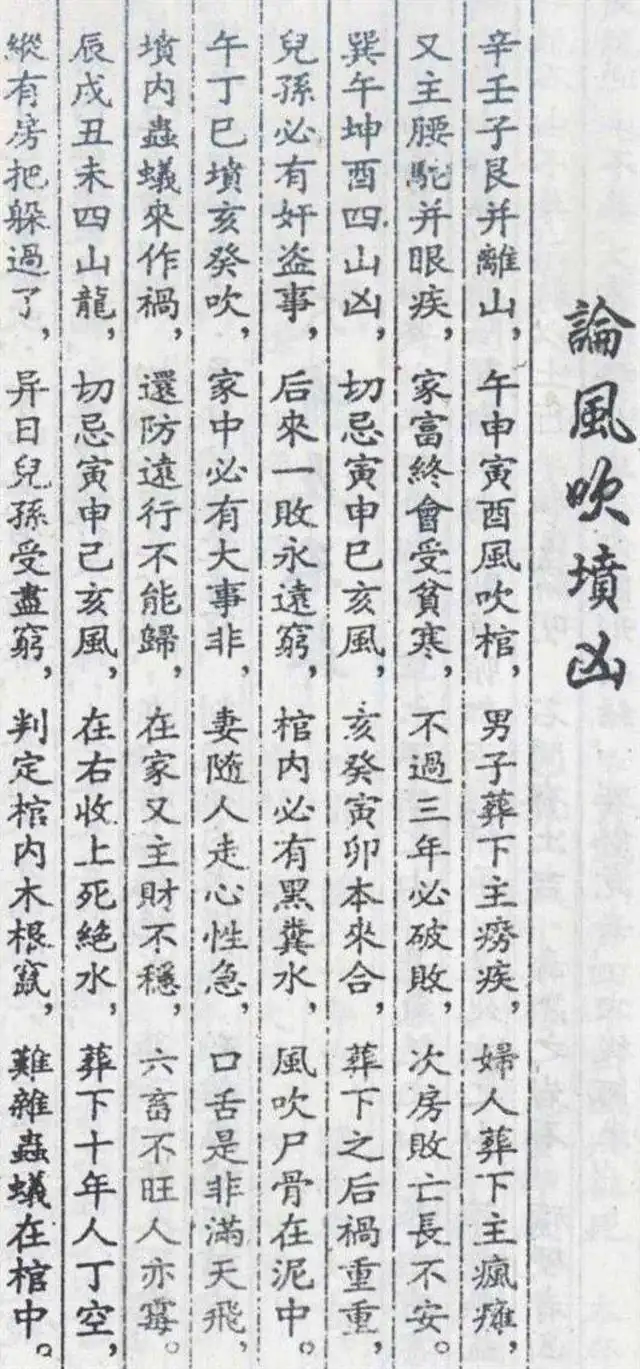 論風吹墳凶
辛壬子艮并離山，午申寅酉風吹棺，男子葬下主癆疾，婦人葬下主瘋癱，
又主腰駝并眼疾，家富終會受貧寒，不過三年必破敗，次房敗亡長不安。
巽午坤酉四山凶，切忌寅申巳亥風，亥癸寅卯本來合，葬下之后禍重重，
兒孫必有奸盗事，后來一敗永遠窮，棺内必有黑糞水，風吹尸骨在泥中。
午丁巳墳亥癸吹，家中必有大事非，妻隨人走心性急，口舌是非滿天飛，
墳内蟲蟻來作禍，還防遠行不能歸，在家又主財不穩，六畜不旺人亦寡。
辰戌丑未四山龍，切忌寅申己亥風，在右收上死絶水，葬下十年人丁空，
縱有房把躲過了，异日兒孫受盡窮，判定棺内木根竄，難雜蟲蟻在棺中。